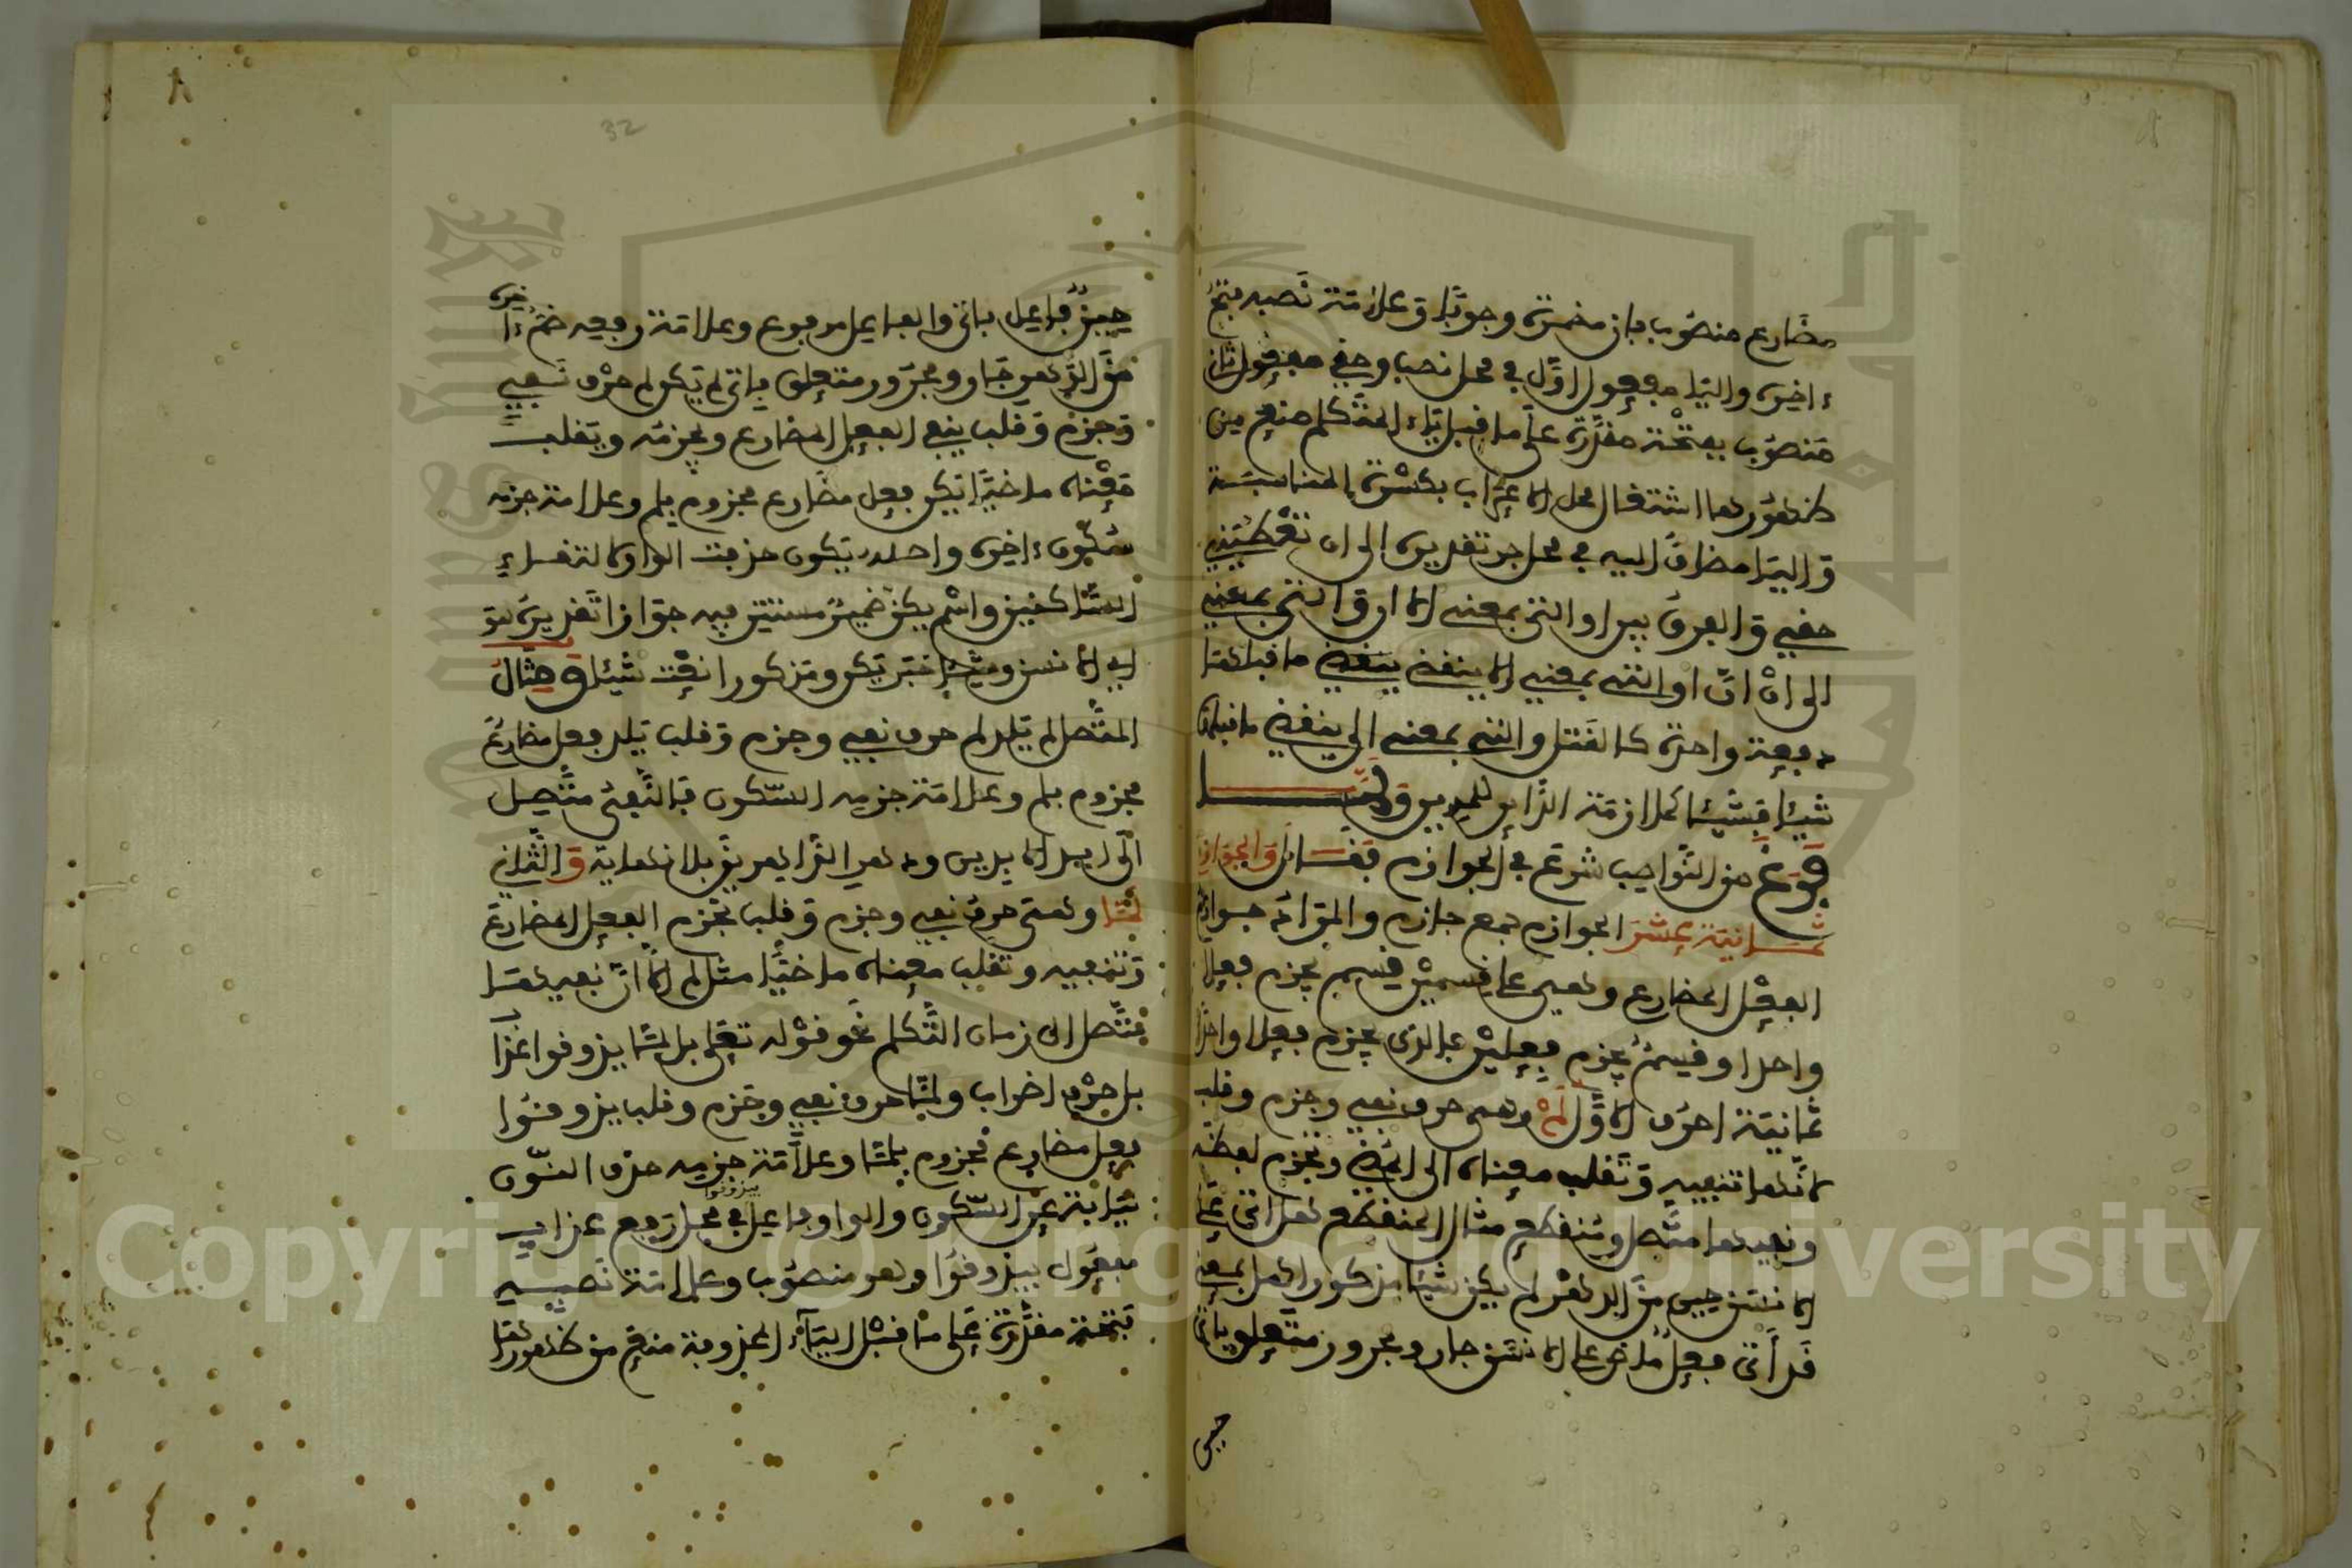 مضارع منصوب بان مضمرة وجوبا وعلامة نصبه فتح
ءاخره واليا مفعول اول في محل نصب وحقي مفعول ثان
منصوب بفتحة مقدرة على ما قبل ياء المتكلم منع من
ظهورها اشتغال محل الاعراب بكسرة المناسبة
واليا مضاف اليه في محل جر تقديره الى ان تعطيني
حقي والفرق بين او التي بمعنى الا او التي بمعنى
الى ان ان او التي بمعنى الا ينقضي ما قبلها
دفعة واحدة كالقتل والتي بمعنى الى ينقضي ما قبلها
شيئا فشيئا كملازمة الداين للمدين ولما
فرغ من النواصب شرع في الجوازم فقال والجوازم
ثمانية عشر الجوازم جمع جازم والمراد جوازم
الفعل المضارع وهي على قسمين قسم يجزم فعلا
واحدا وقسم يجزم فعلين فالذي يجزم فعلا واحدا
ثمانية احرف الاول لم وهي حرف نفي وجزم وقلب
لانها تنفيه وتقلب معناه الى المضي وتجزم لفظه
ونفيها متصل ومنقطع مثال المنقطع هل اتى على
الانسان حين من الدهر لم يكن شيئا مذكورا هل بمعنى
قد أتى فعل ماض على الانسان جار ومجرور متعلق باتى
حين
حين فاعل باتى والفاعل مرفوع وعلامة رفعه ضم ءاخره
من الدهر جار ومجرور متعلق باتى لم يكن لم حرف نفي
وجزم وقلب ينفي الفعل المضارع ويجزمه ويقلب
معناه ماضيا يكن فعل مضارع مجزوم بلم وعلامة جزمه
سكون ءاخره واصله يكون حذفت الواو لالتقاء
الساكنين واسم يكن ضمير مستتر فيه جوازا تقديره هو
اي الانسن وشيئا خبر يكن ومذكورا نعت شيئا ومثال
المتصل لم يلد لم حرف نفي وجزم وقلب يلد فعل مضارع
مجزوم بلم وعلامة جزمه السكون فالنفي متصل
الى ابد الابدين ودهر الداهرين بلا نهاية والثاني
لما وهي حرف نفي وجزم وقلب تجزم الفعل المضارع
وتنفيه وتقلب معناه ماضيا مثل لم الا ان نفيها
متصل الى زمان التكلم نحو قوله تعلى بل لما يذوقوا عذاب
بل حرف اضراب ولما حرف نفي وجزم وقلب يذوقوا
فعل مضارع مجزوم بلما وعلامة جزمه حذف النون
نيابة عن السكون والواو فاعل في محل رفع عذاب
بيذوقوا
مفعول بيذوقوا وهو منصوب وعلامة نصبه
فتحة مقدرة على ما قبل الياء المحذوفة منع من ظهورها
32
٨
Copyright © King Saud University